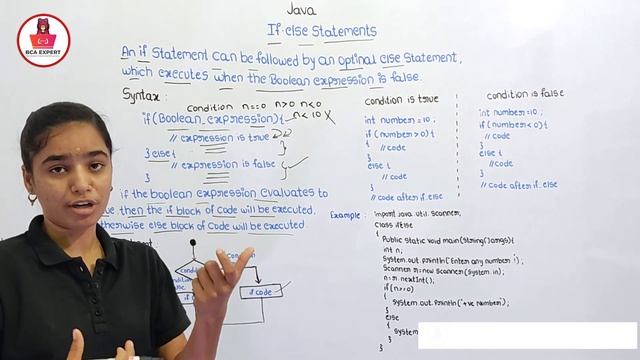 BCA EXPERT
Java
If-else Statements
An if Statement Can be followed by an optinal else Statement,
which executes when the Boolean expression is false.
Syntax:
condition n==0 n>0 n<0
if (Boolean expression) {
n<10 X
// expression is true
} else {
// expression is false
}
if the boolean expression evaluates to
then the if block of Code will be executed.
otherwise else block of Code will be executed
if code
condition is true
int number = 10;
if (number > 0) {
// code
}
else {
// code
}
// code after if..else
condition is false
int number = 10;
if (number < 0) {
// code
}
else {
// code
}
// code after if..else
Example:
import java.util.Scanner;
Class ifElse
{
Public static void main (String[] args) {
int n;
System.out.println("Enter any number:");
Scanner r = new Scanner (System.in);
n = r.nextInt();
if (n>=0)
{
System.out.println("+ve Number");
}
else
{
System
}
}